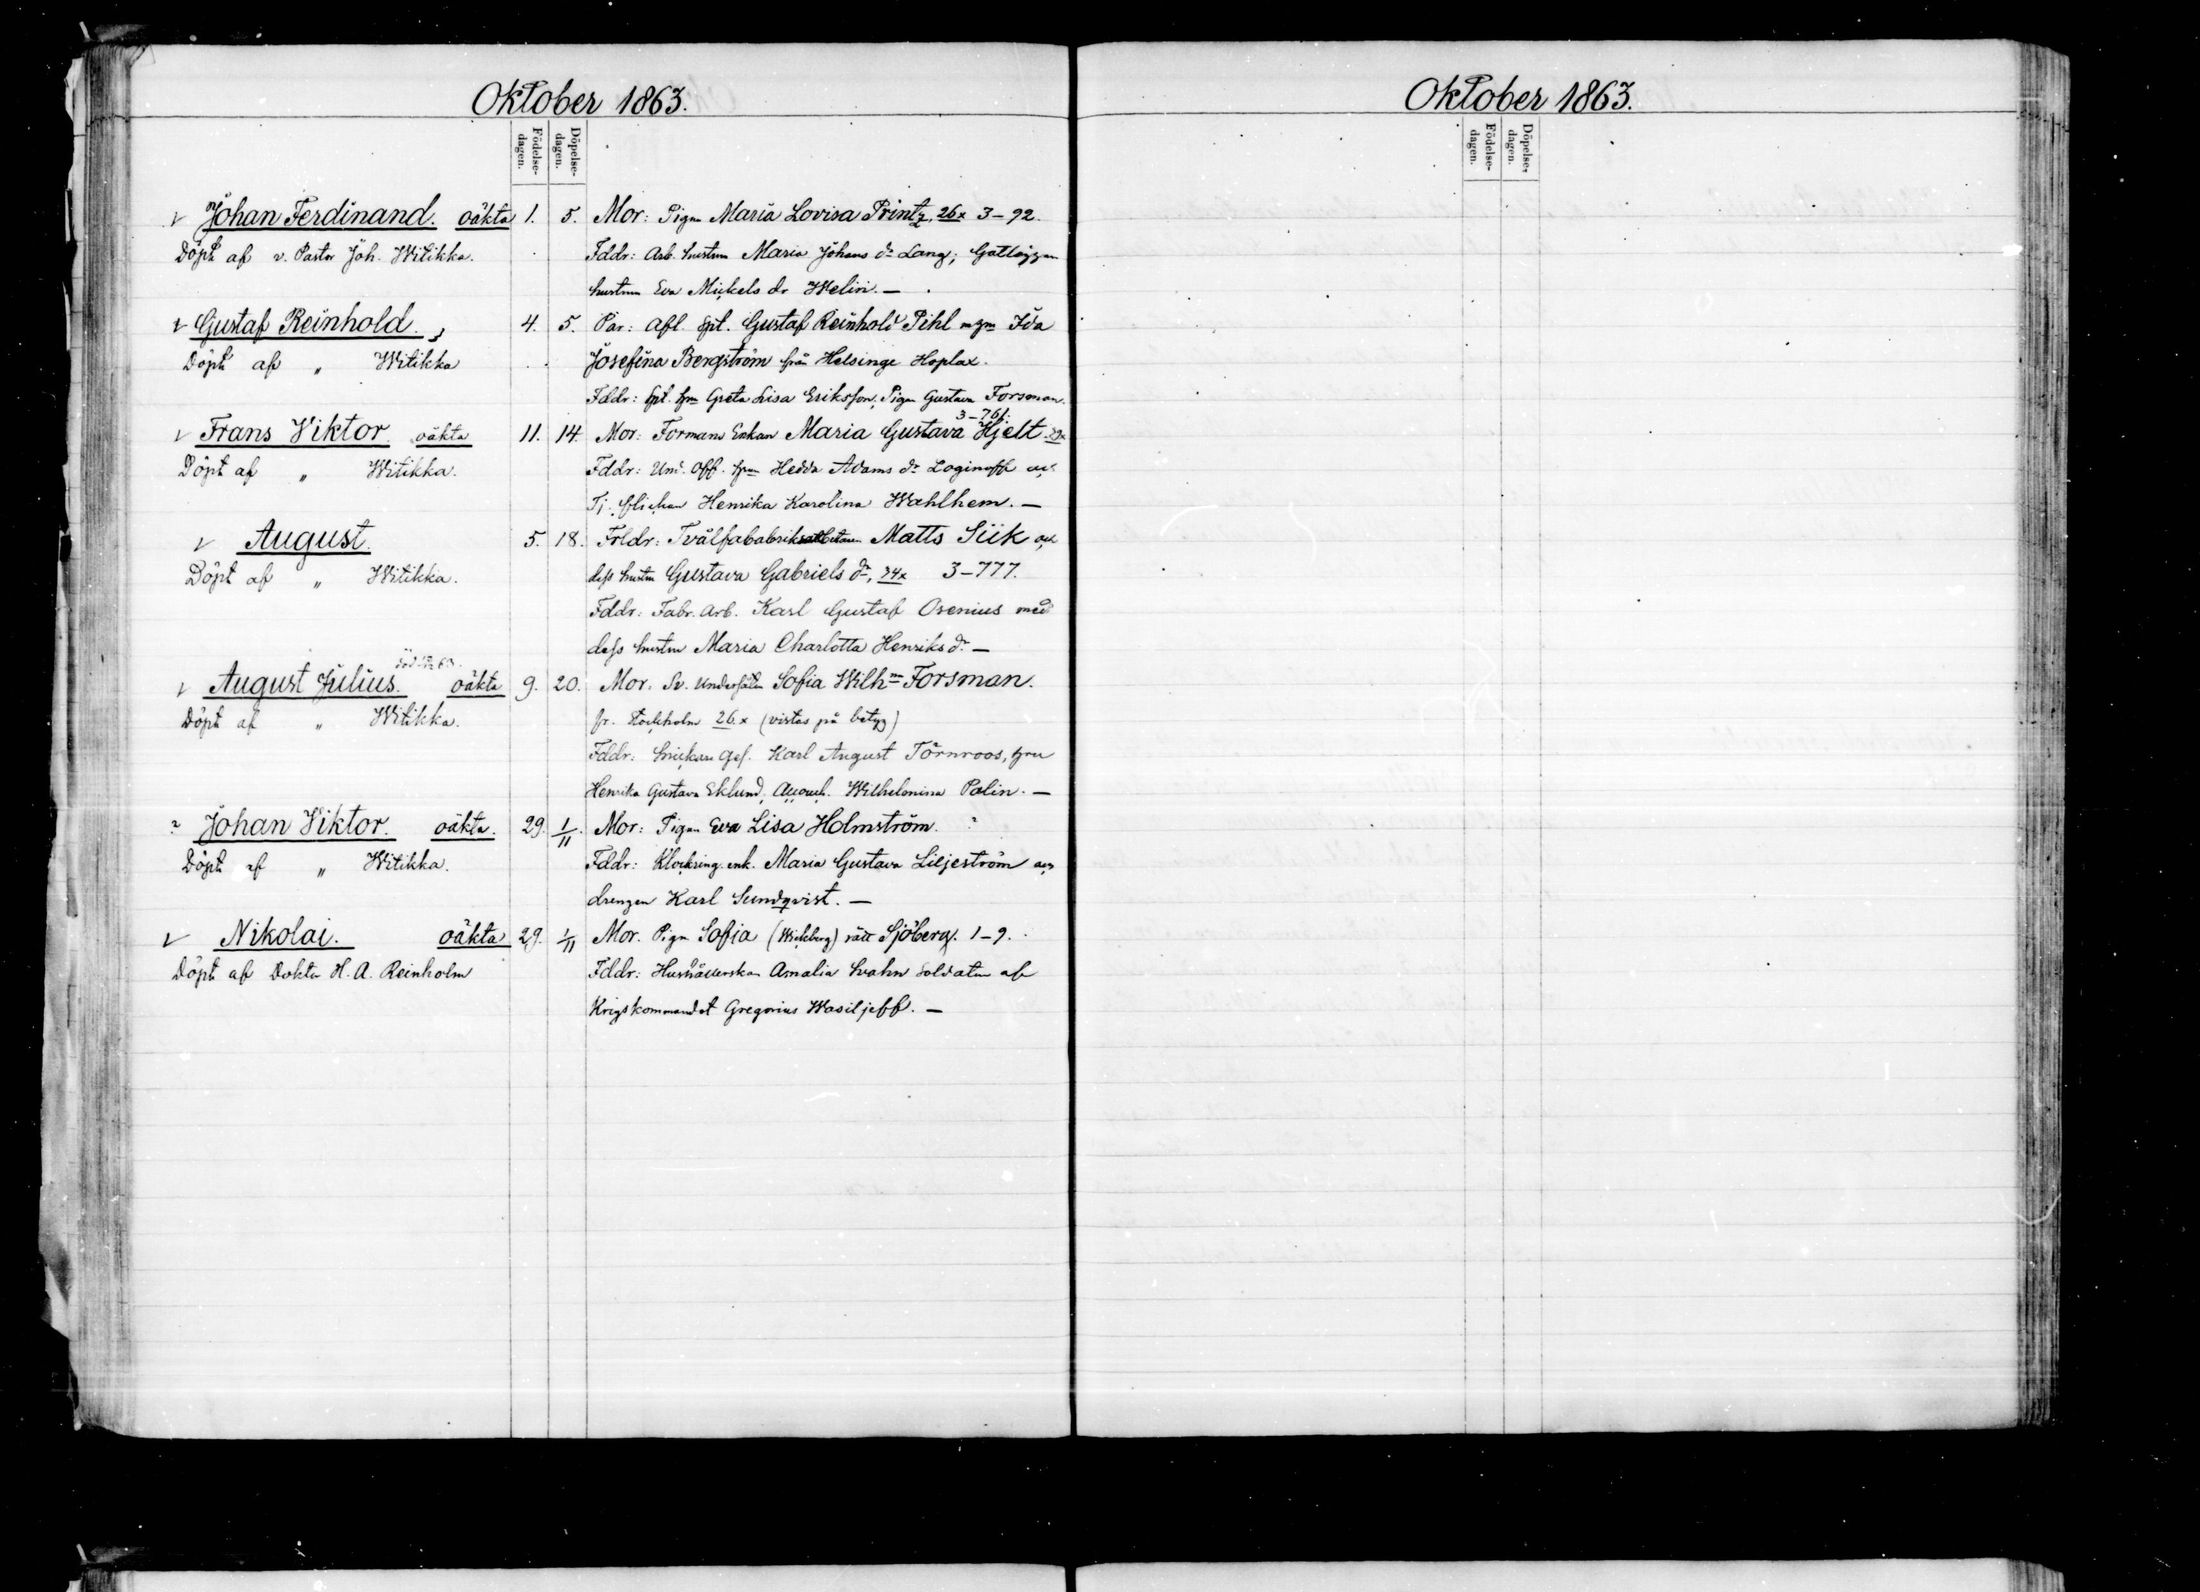 Oktober 1863.
Födelse-dagen.
Döpelse-dagen.
Johan Ferdinand. oäkta 1. 5. Mor: Pigan Maria Lovisa Printz, 26x 3-92.
Döpt af v. Pastor Joh. Witikka. Fddr: Arb. hustrun Maria Johans dr Lang;
hustrun Eva Mickels dr Welin. —
Gustaf Reinhold. 4. 5. Par: Afl. Gustaf Reinhold Pihl Ida
Döpt af " Witikka Josefina Bergström från Helsinge Hoplax.
Fddr: Greta Lisa Eriksson, Pigan Gustava Forsman.
3-761.
Frans Viktor oäkta 11. 14. Mor: Formans Enkan Maria Gustava Hjelt.
Döpt af " Witikka. Fddr: Und. Off. Hedda Adams dr Loginoff
Tj. flickan Henrika Karolina Wahlhem. —
August. 5. 18. Frldr: Matts Siik
Döpt af " Witikka. dess hustru Gustava Gabriels dr, 34x 3-777.
Fddr: Fabr. Arb. Karl Gustaf Osenius med
dess hustru Maria Charlotta Henriks dr —
August Julius. oäkta 9. 20. Mor: Sv. Undersåten Sofia Wilhna Forsman.
Döpt af " Witikka. fr. Stockholm 26.x (vistas på betyg)
Fddr: Snickare Ges. Karl August Törnroos,
Henrika Gustava Eklund, Wilhelmina Palin. —
? Johan Viktor. oäkta. 29. 1/11. Mor: Pigan Eva Lisa Holmström. ?
Döpt af " Witikka. Fddr: enk. Maria Gustava Liljeström
drengen Karl Sundqvist. —
Nikolai. oäkta 29. 1/11 Mor. Pigan Sofia (Wickberg) rätt Sjöberg. 1-9.
Döpt af Doktor H. A. Reinholm Fddr: Hushållerskan Amalia Svahn soldaten af
Krigskommandot Gregorius Wasiljeff. —
Oktober 1863.
Födelse-dagen.
Döpelse-dagen.